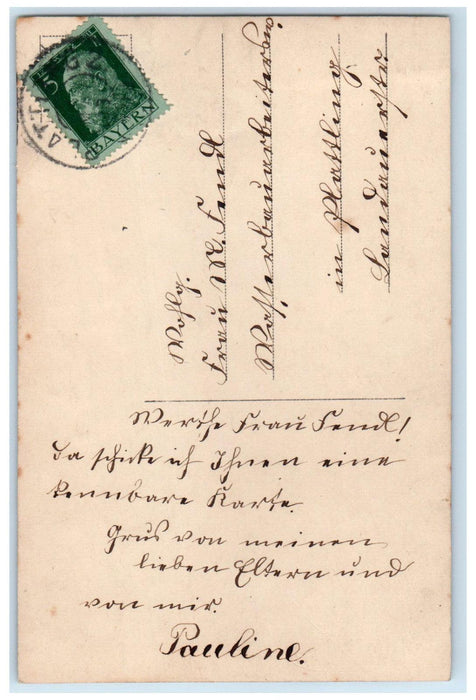 5
BAYERN
PLATTLING
Wohlg.
Frau M. Fendl
Wasserbauarbeitersw.
in Plattling
Landauerstr.
Werthe Frau Fendl!
Da schicke ich Ihnen eine
kennbare Karte.
Grus von meinen
lieben Eltern und
von mir.
Pauline.